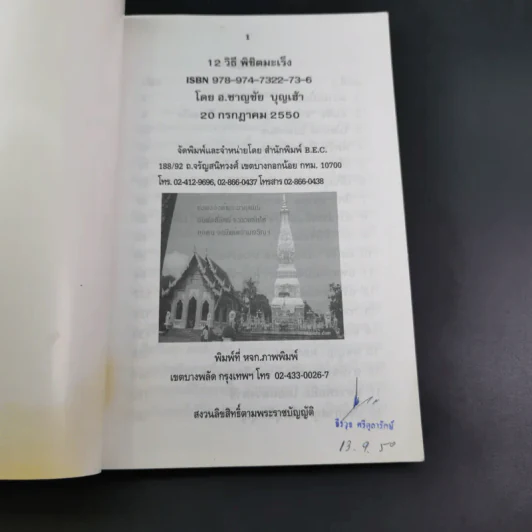 1
12 วิธี พิชิตมะเร็ง
ISBN 978-974-7322-73-6
โดย อ.ชาญชัย บุญเฮ้า
20 กรกฎาคม 2550
จัดพิมพ์และจำหน่ายโดย สำนักพิมพ์ B.E.C.
188/92 ถ.จรัญสนิทวงศ์ เขตบางกอกน้อย กทม. 10700
โทร. 02-412-9696, 02-866-0437 โทรสาร 02-866-0438
พิมพ์ที่ หจก.ภาพพิมพ์
เขตบางพลัด กรุงเทพฯ โทร 02-433-0026-7
สงวนลิขสิทธิ์ตามพระราชบัญญัติ
13. 9. 50